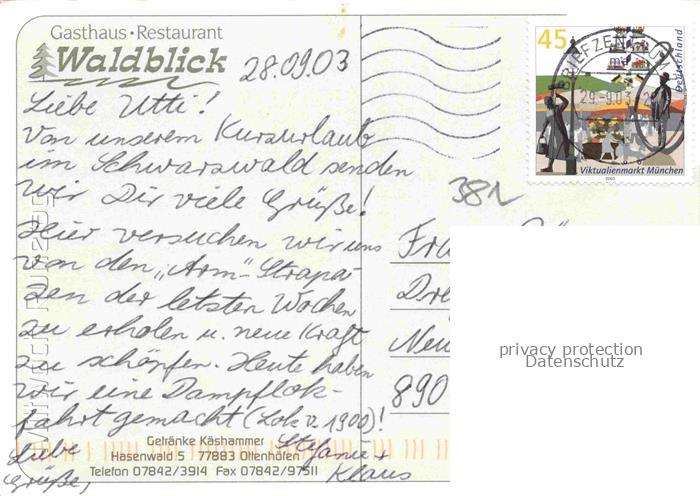 Gasthaus • Restaurant
Waldblick
28.09.03
Liebe Utti!
Von unserem Kurzurlaub
im Schwarzwald senden
wir Dir viele Grüße!
Hier versuchen wir uns
von den "Arm"-Strapa-
zen der letzten Wochen
zu erholen u. neue Kraft
zu schöpfen. Heute haben
wir eine Dampflok-
fahrt gemacht (Lok v. 1900)!
Liebe
Grüße,
Stefanie +
Klaus
Getränke Käshammer
Hasenwald 5 77883 Ottenhöfen
Telefon 07842/3914 Fax 07842/97511
45
Deutschland
BRIEFZENTRUM
29.-9.03
Viktualienmarkt München
2003
38
Fra
Dre
Neu
890
privacy protection
Datenschutz